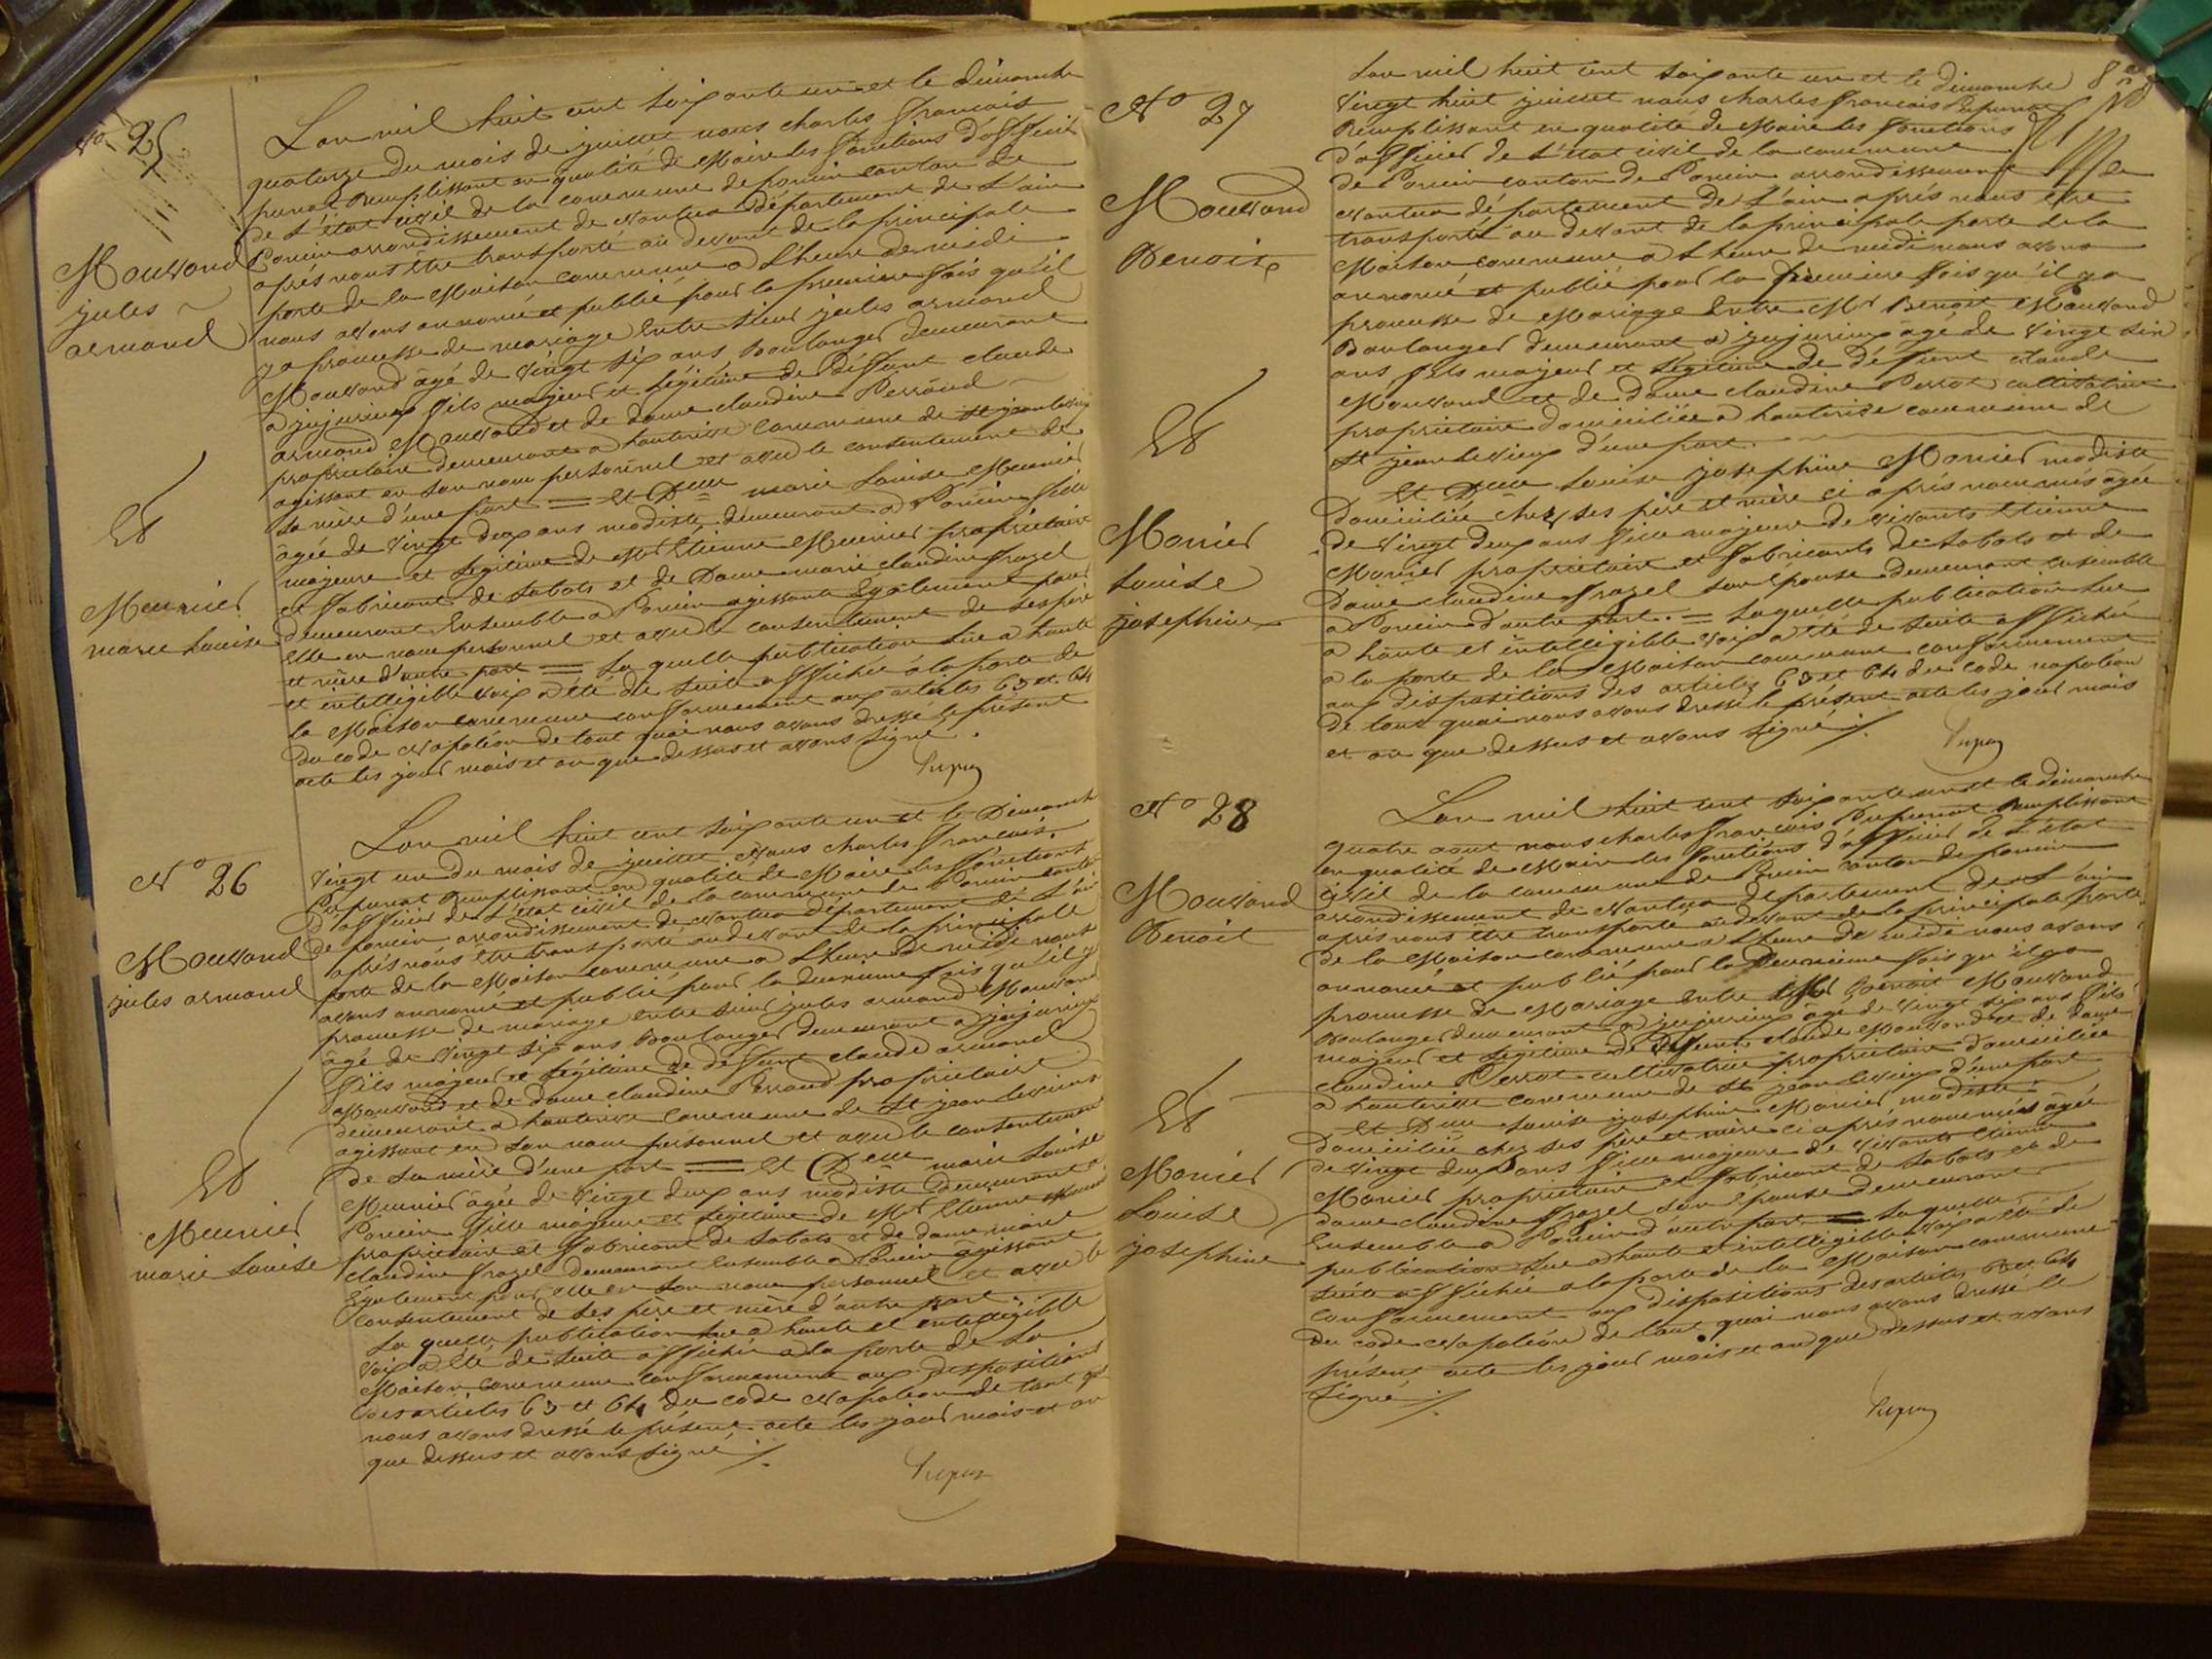 No 25
Mouvand
jules
armand
Et
Meunier
marie Louise
L'an mil huit cent soixante un et le dimanche
quatorze du mois de juillet nous charles francois
punat Remplissant en qualité de Maire les fonctions d'officier
de L'état civil de la commune de poncin canton de
Poncin arrondissement de Nantua département de L'ain
après nous être transporté au devant de la principale
porte de la Maison commune a L'heure de midi
nous avons annoncé et publié pour la premiere fois qu'il
y a promesse de mariage Entre sieur jules armand
Mouvand âgé de vingt six ans Boulanger demeurant
a jujurieux fils majeur et Légitime de Déffunt claude
armand Mouvand et de dame claudine Perraud
propriétaire demeurant a hauterive commune de st jean levieux
agissant en son nom personnel et avec le consentement de
sa mère d'une part = et Delle marie Louise Meunier
âgée de vingt deux ans modiste demeurant a Poncin fille
majeure et Légitime de Mr Etienne Meunier propriétaire
et fabricant de sabots et de Dame marie claudine frazel
demeurant Ensemble a Poncin agissant Egalement pour
elle en nom personnel et avec le consentement de ses père
et mère d'autre part = La quelle publication Lue a haute
et intelligible voix a été de suite affichée a la porte de
la Maison commune conformement aux articles 63 et 64
Du code Napoléon de tout quoi nous avons dressé le présent
acte les jour mois et an que dessus et avons signé.
No 26
Mouvand
jules armand
Et
Meunier
marie Louise
L'an mil huit cent soixante un et le Dimanche
vingt un du mois de juillet Nous charles francois
Pupunat Remplissant en qualité de Maire les fonctions
D'officier de L'état civil de la commune de Poncin canton
de poncin arrondissement de Nantua département de L'ain
après nous être transporté au devant de la principale
porte de la Maison commune a L'heure de midi nous
avons annoncé et publié pour la deuxieme fois qu'il y a
promesse de mariage entre sieur jules armand Mouvand
âgé de vingt six ans Boulanger demeurant a jujurieux
fils majeur et Légitime de deffunt claude armand
Mouvand et de dame claudine Perraud propriétaire
demeurant a hauterive commune de st jean levieux
agissant en son nom personnel et avec le consentement
de sa mère d'une part = et Delle marie Louise
Meunier âgée de vingt deux ans modiste demeurant a
Poncin fille majeure et Légitime de Mr Etienne Meunier
propriétaire et fabricant de sabots et de dame marie
claudine frazel demeurant Ensemble a Poncin agissant
Egalement pour elle en son nom personnel et avec le
consentement de ses père et mère d'autre part.
La quelle publication Lue a haute et entelligible
voix a été de suite affichée a la porte de la
Maison commune conformement aux dispositions
des articles 63 et 64 du code Napoléon de tout quoi
nous avons dressé le présent acte les jour mois et an
que dessus et avons signé
No 27
Mouvand
Benoit
Et
Monier
Louise
josephine
L'an mil huit cent soixante un et le dimanche
vingt huit juillet nous charles francois Pupunat
Remplissant en qualité de Maire les fonctions
d'officier de L'état civil de la commune
de Poncin canton de Poncin arrondissement de
Nantua département de L'ain après nous être
transporté au devant de la principale porte de la
Maison commune a L'heure de midi nous avons
annoncé et publié pour la premiere fois qu'il y a
promesse de Mariage Entre Mr Benoit Mouvand
Boulanger demeurant a jujurieux âgé de vingt six
ans fils majeur et Légitime de défunt claude
Mouvand et de Dame claudine Perrot cultivatrice
propriétaire domiciliée a hauterive commune de
st jean levieux d'une part.
Et Delle Louise josephine Monier modiste
Domiciliée chez ses père et mère ci après nommés âgée
de vingt deux ans fille majeure de vivants Etienne
Monier propriétaire et fabricants de sabots et de
Dame claudine frazel son épouse demeurant ensemble
a Poncin d'autre part. = Laquelle publication Lue
a haute et intelligible voix a été de suite affichée
a la porte de la Maison commune conformement
aux dispositions des articles 63 et 64 du code napoléon
de tout quoi nous avons dressé le présent acte les jour mois
et an que dessus et avons signé
No 28
Mouvand
Benoit
Et
Monier
Louise
josephine
L'an mil huit cent soixante un et le dimanche
quatre aout nous charles francois Pupunat Remplissant
en qualité de Maire les fonctions d'officier de L'état
civil de la commune de Poncin canton de poncin
arrondissement de Nantua departement de L'ain
après nous être transporté au devant de la principale porte
de la Maison commune a L'heure de midi nous avons
annoncé et publié pour la Deuxieme fois qu'il y a
promesse de Mariage Entre Mr Benoit Mouvand
Boulanger demeurant a jujurieux âgé de vingt six ans fils
majeur et Légitime de Deffunt claude Mouvand et de dame
claudine Perrot cultivatrice propriétaire domiciliée
a hauterive commune de st jean levieux d'une part
Et Delle Louise josephine Monier modiste
Domiciliée chez ses père et mère ci après nommés âgée
de vingt deux ans fille majeure de vivants Etienne
Monier propriétaire et fabricant de sabots et de
dame claudine frazel son épouse demeurant
Ensemble a Poncin d'autre part = Laquelle
publication Lue a haute et intelligible voix a été de
suite affichée a la porte de la Maison commune
conformement aux dispositions des articles 63 et 64
du code Napoléon de tout quoi nous avons dressé le
présent acte les jour mois et an que dessus et avons
signé